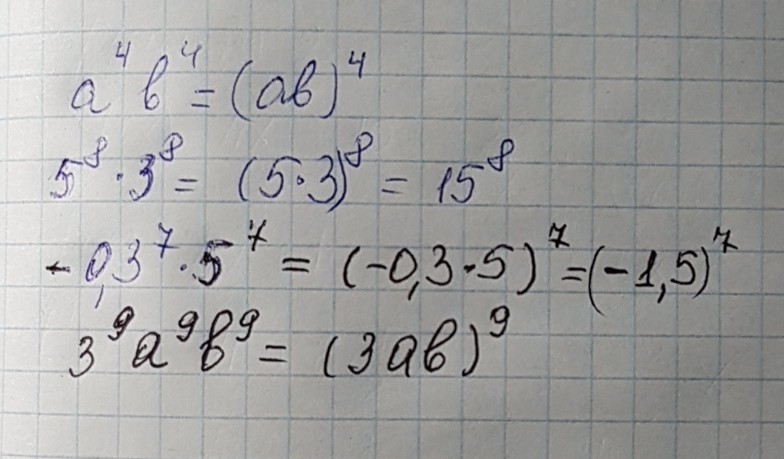 a⁴b⁴ = (ab)⁴
5⁸·3⁸ = (5·3)⁸ = 15⁸
-0,3⁷·5⁷ = (-0,3·5)⁷ = (-1,5)⁷
3⁹a⁹b⁹ = (3ab)⁹